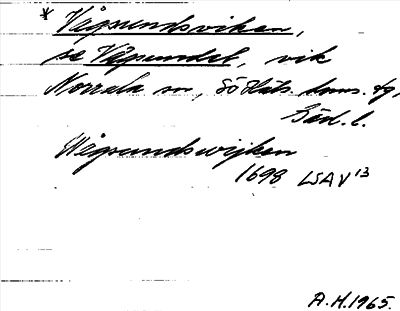 * Vågsundsviken,
se Vågsundet, vik
Norrala sn, S Häls. doms. tg,
Gäd. l.
Wågsundswijken
1698 LSA V 13
A.H. 1965.